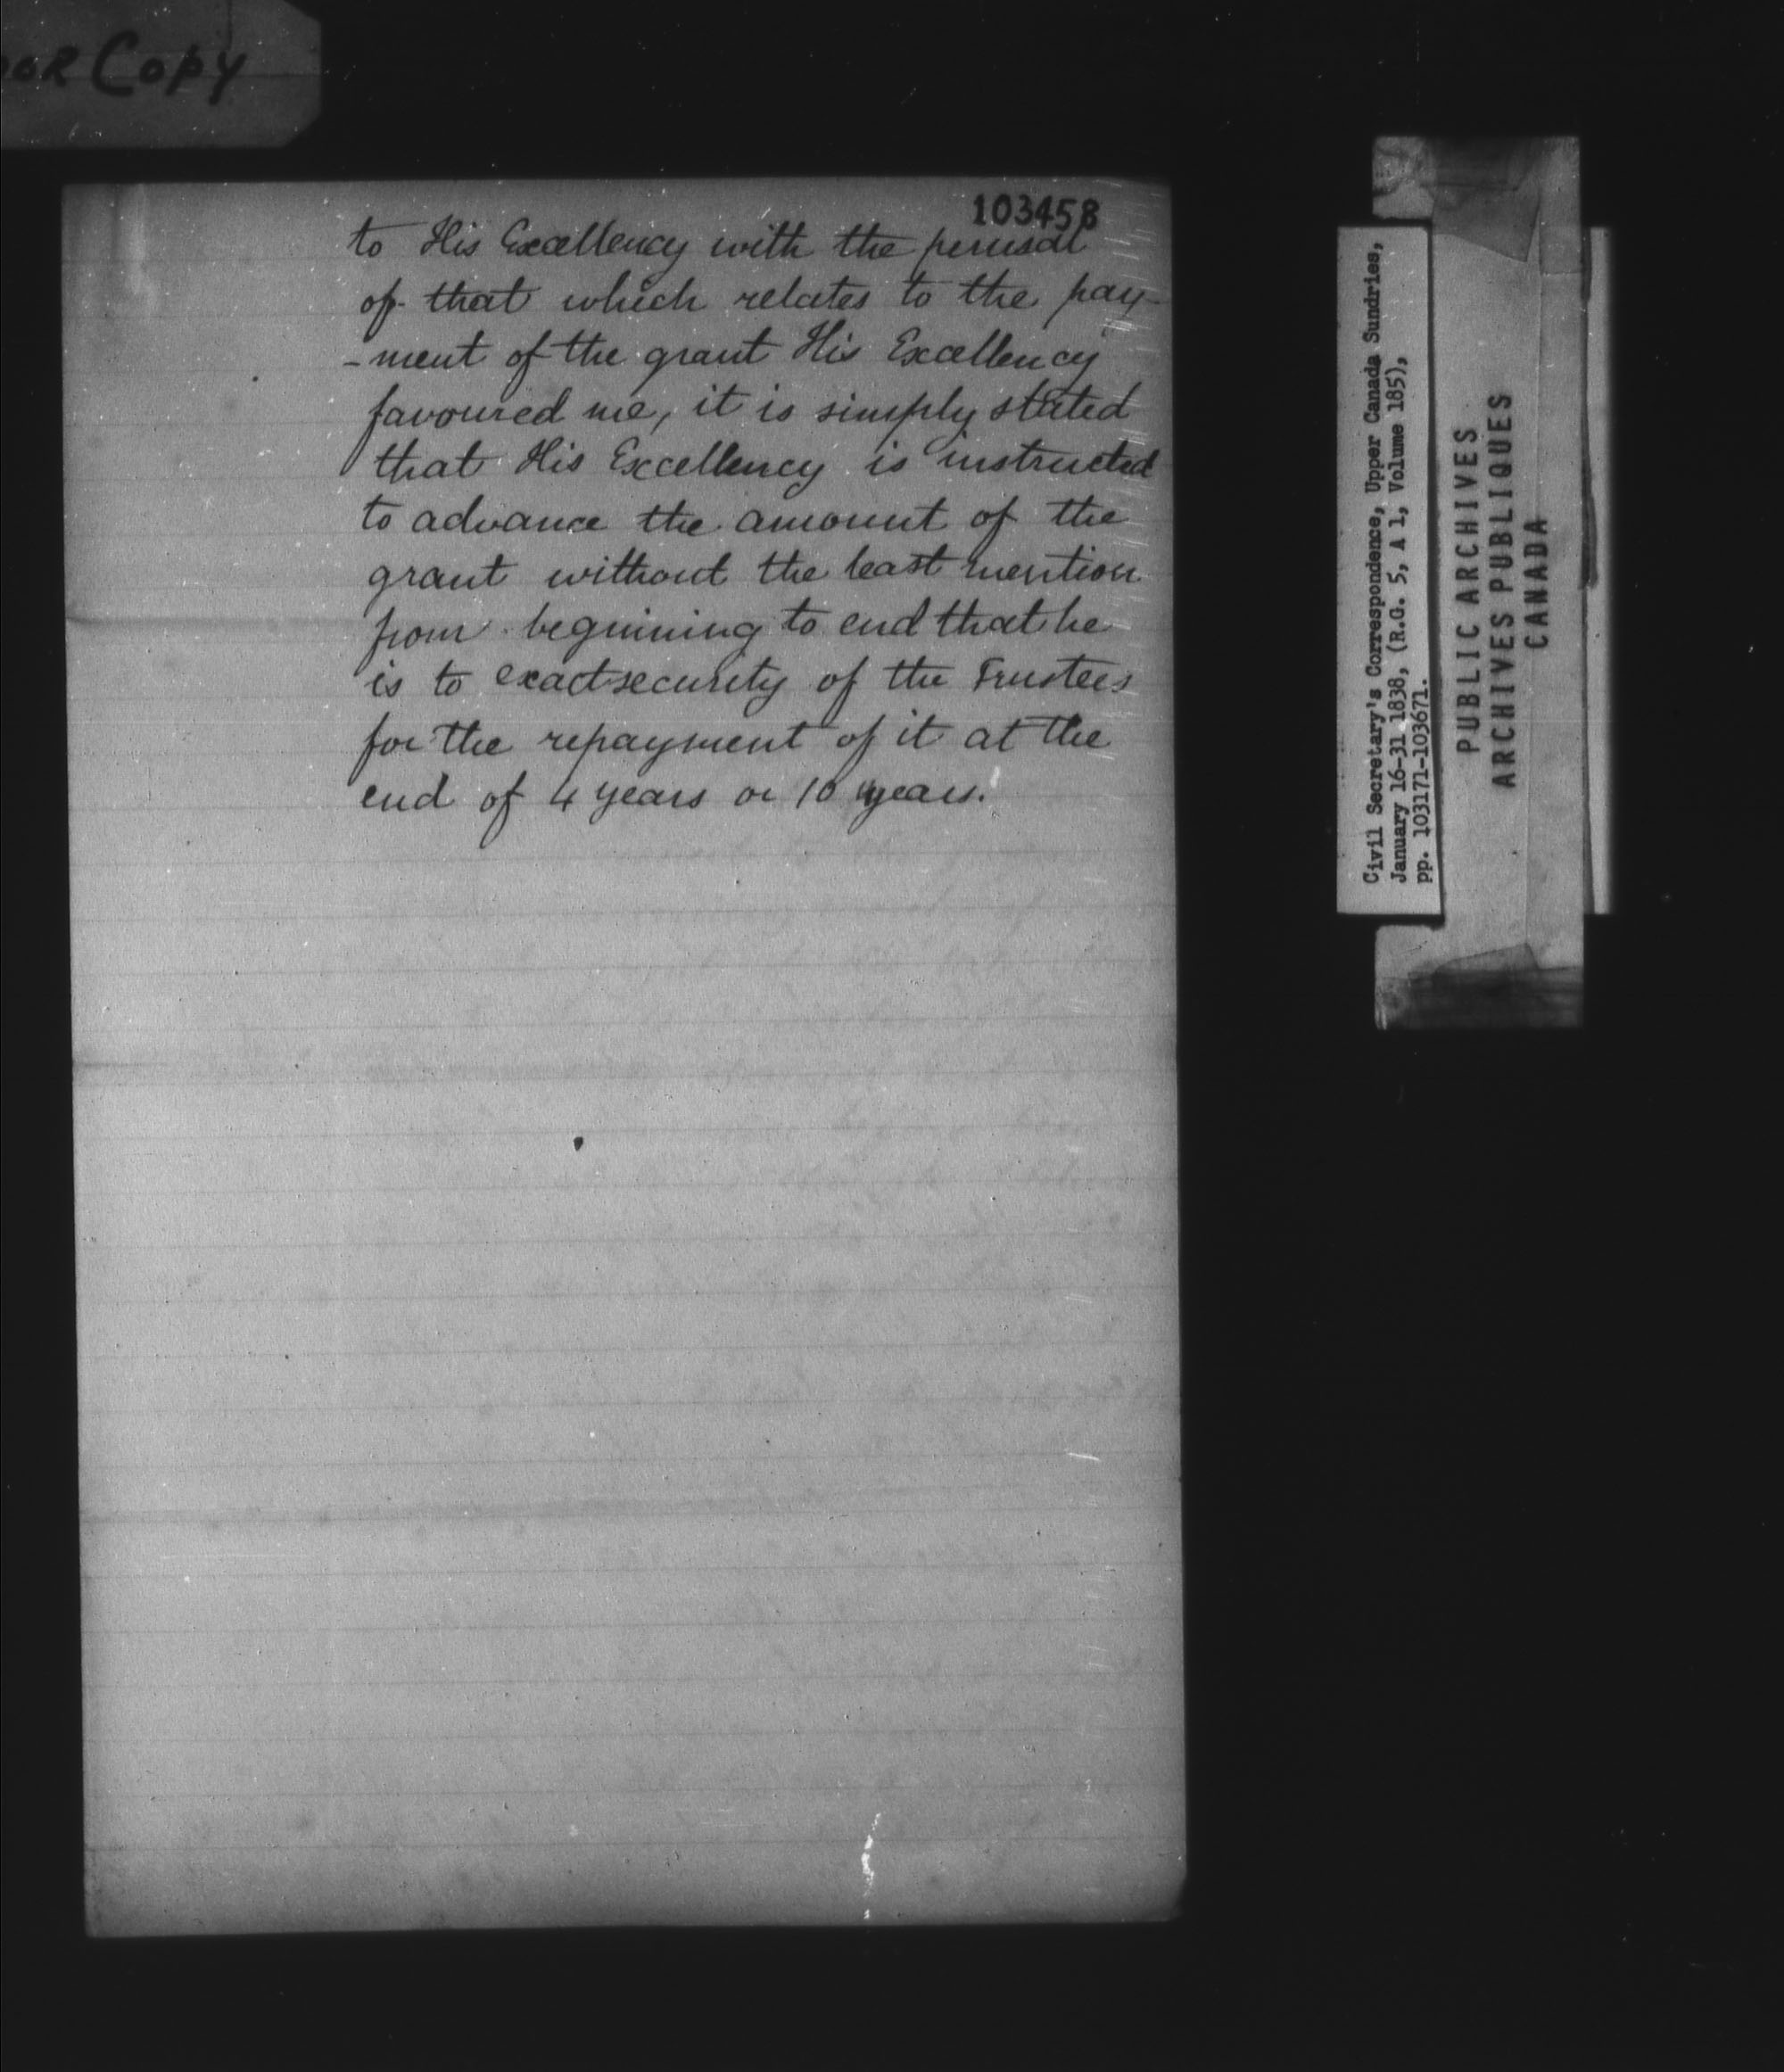 OOR COPY
103458
to His Excellency with the perusal
of that which relates to the pay-
-ment of the grant His Excellency
favoured me, it is simply stated
that His Excellency is instructed
to advance the amount of the
grant without the least mention
from beginning to end that he
is to exact security of the Trustees
for the repayment of it at the
end of 4 years or 10 years.
Civil Secretary's Correspondence, Upper Canada Sundries,
January 16-31 1838, (R.G. 5, A 1, Volume 185),
pp. 103171-103671.
PUBLIC ARCHIVES
ARCHIVES PUBLIQUES
CANADA